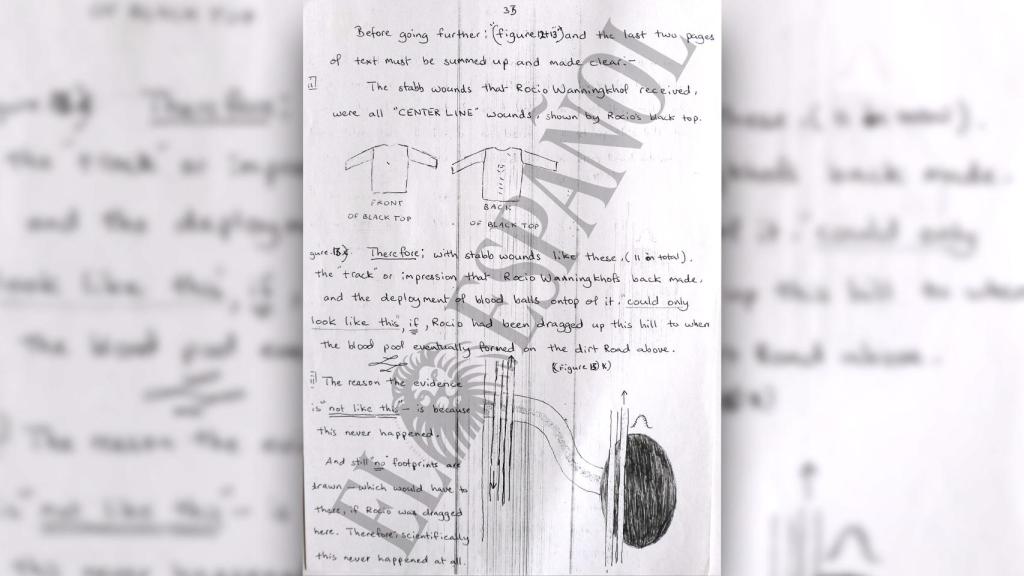 33
Before going further: (figure 12+13) and the last two pages
of text must be summed up and made clear.-
i
The stabb wounds that Rocio Wanningkhof received,
were all "CENTER LINE" wounds, shown by Rocio's black top.
FRONT
OF BLACK TOP
BACK
OF BLACK TOP
Therefore; with stabb wounds like these, (11 in total).
the "track" or impression that Rocio Wanningkhofs back made,
and the deployment of blood balls ontop of it, "could only
look like this", if, Rocio had been dragged up this hill to when
the blood pool eventually formed on the dirt Road above.
ii The reason the evidence
is "not like this" - is because
this never happened.
And still "no" footprints are
drawn - which would have to
there, if Rocio was dragged
here. Therefore, scientifically
this never happened at all.
EL ESPAÑOL